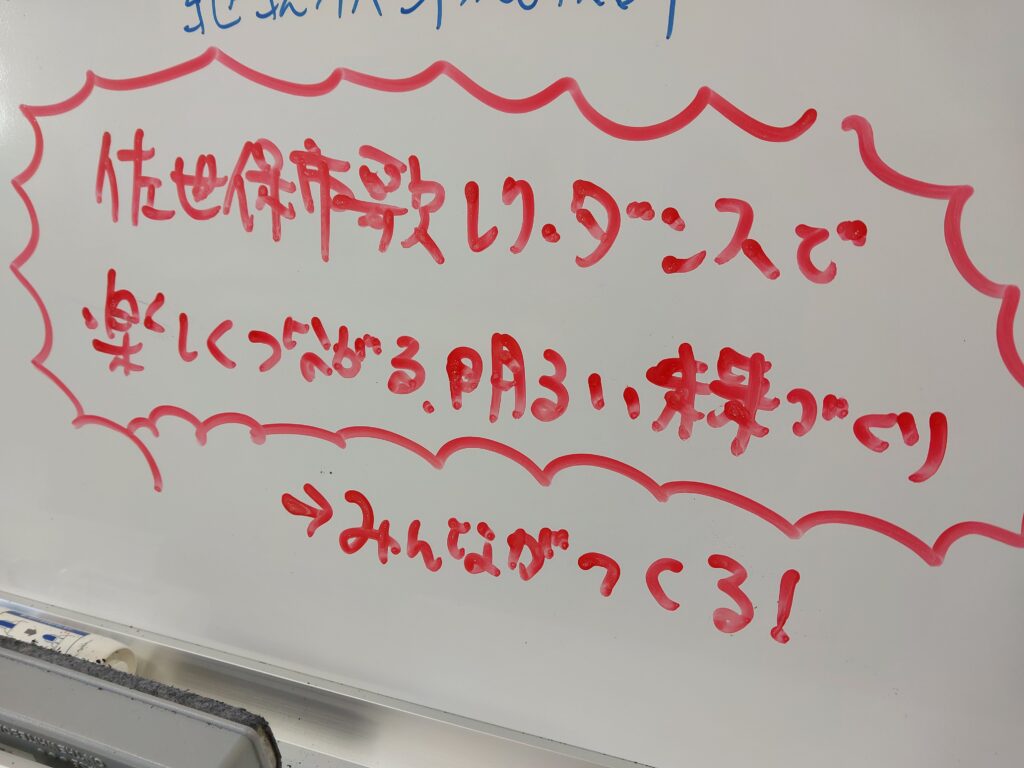 佐世保市歌レク・ダンスで
楽しくつながる、明るい未来づくり
→みんながつくる!